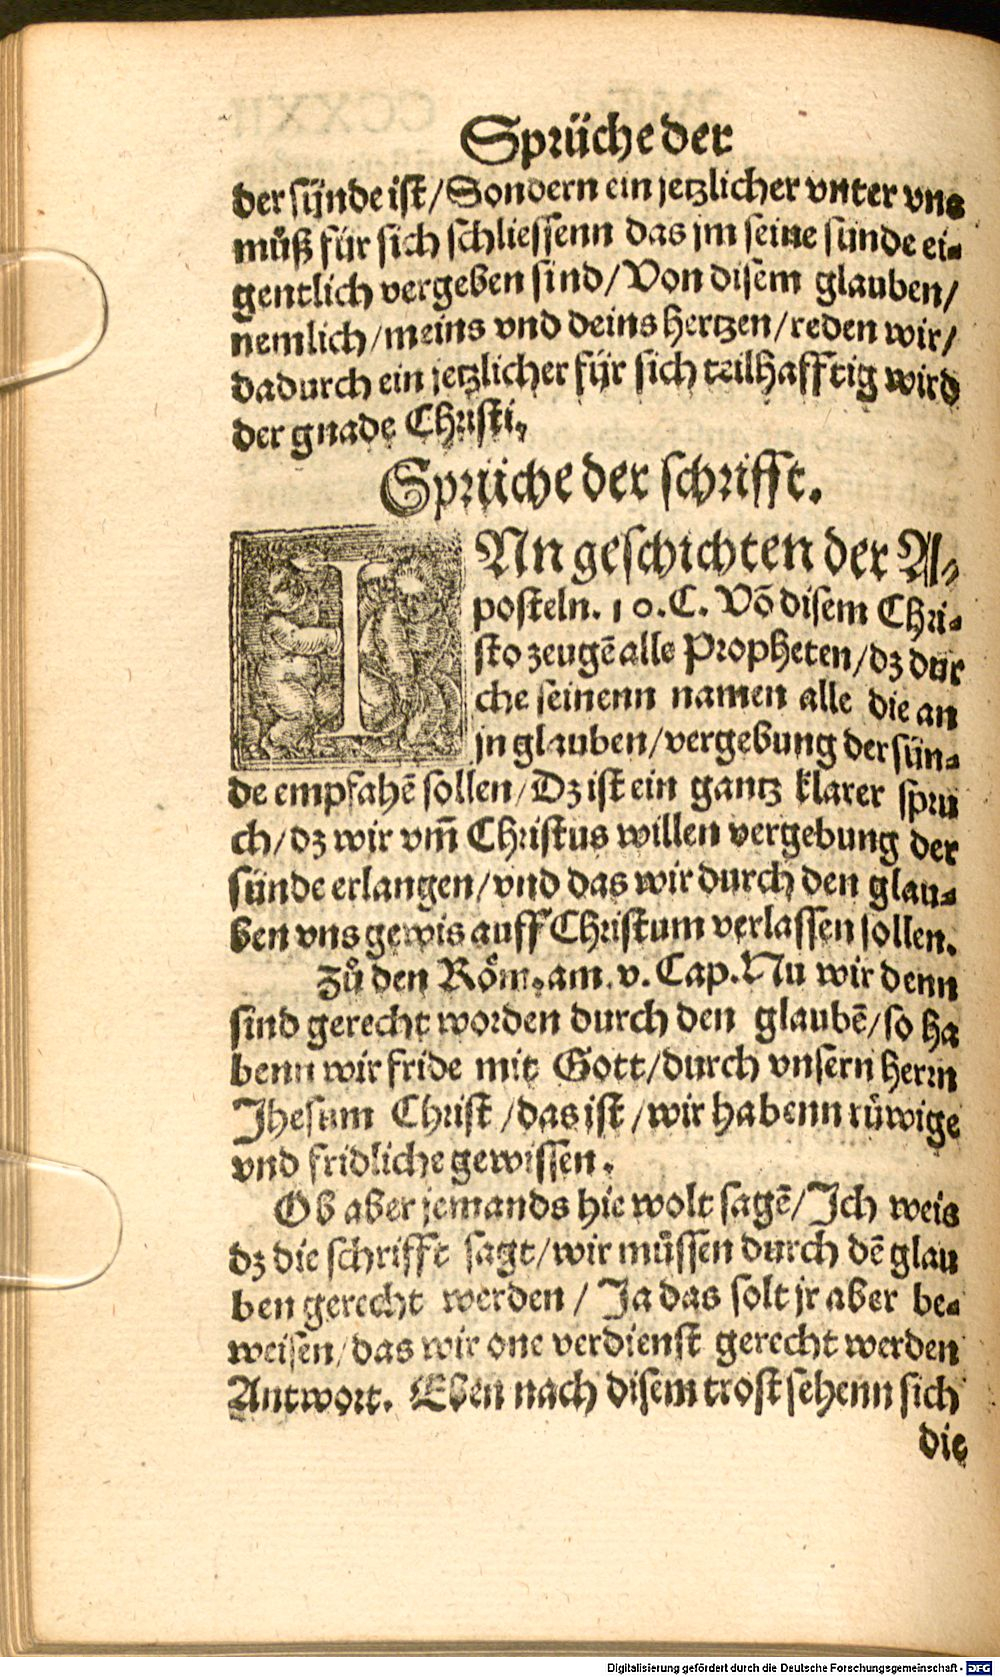 Sprüche der
der sünde ist/Sondern ein jetzlicher vnter vns
můß für sich schliessenn das jm seine sünde ei-
gentlich vergeben sind/Von disem glauben/
nemlich/meins vnd deins hertzen/reden wir/
dadurch ein jetzlicher für sich teilhafftig wird
der gnade Christi.
Sprüche der schrifft.
INn geschichten der A-
posteln. 10.C. Võ disem Chri-
sto zeugẽ alle Propheten/dz dur
che seinenn namen alle die an
jn glauben/vergebung der sün-
de empfahẽ sollen/Dz ist ein gantz klarer spru
ch/dz wir vm̃ Christus willen vergebung der
sünde erlangen/vnd das wir durch den glau-
ben vns gewis auff Christum verlassen sollen.
Zů den Röm. am. v. Cap. Nu wir denn
sind gerecht worden durch den glaubẽ/so ha
benn wir fride mit Gott/durch vnsern herrn
Jhesum Christ/das ist/wir habenn rüwige
vnd fridliche gewissen.
Ob aber jemands hie wolt sagẽ/Ich weis
dz die schrifft sagt/wir müssen durch dẽ glau
ben gerecht werden/Ja das solt jr aber be-
weisen/das wir one verdienst gerecht werden
Antwort. Eben nach disem trost sehenn sich
die
Digitalisierung gefördert durch die Deutsche Forschungsgemeinschaft - DFG